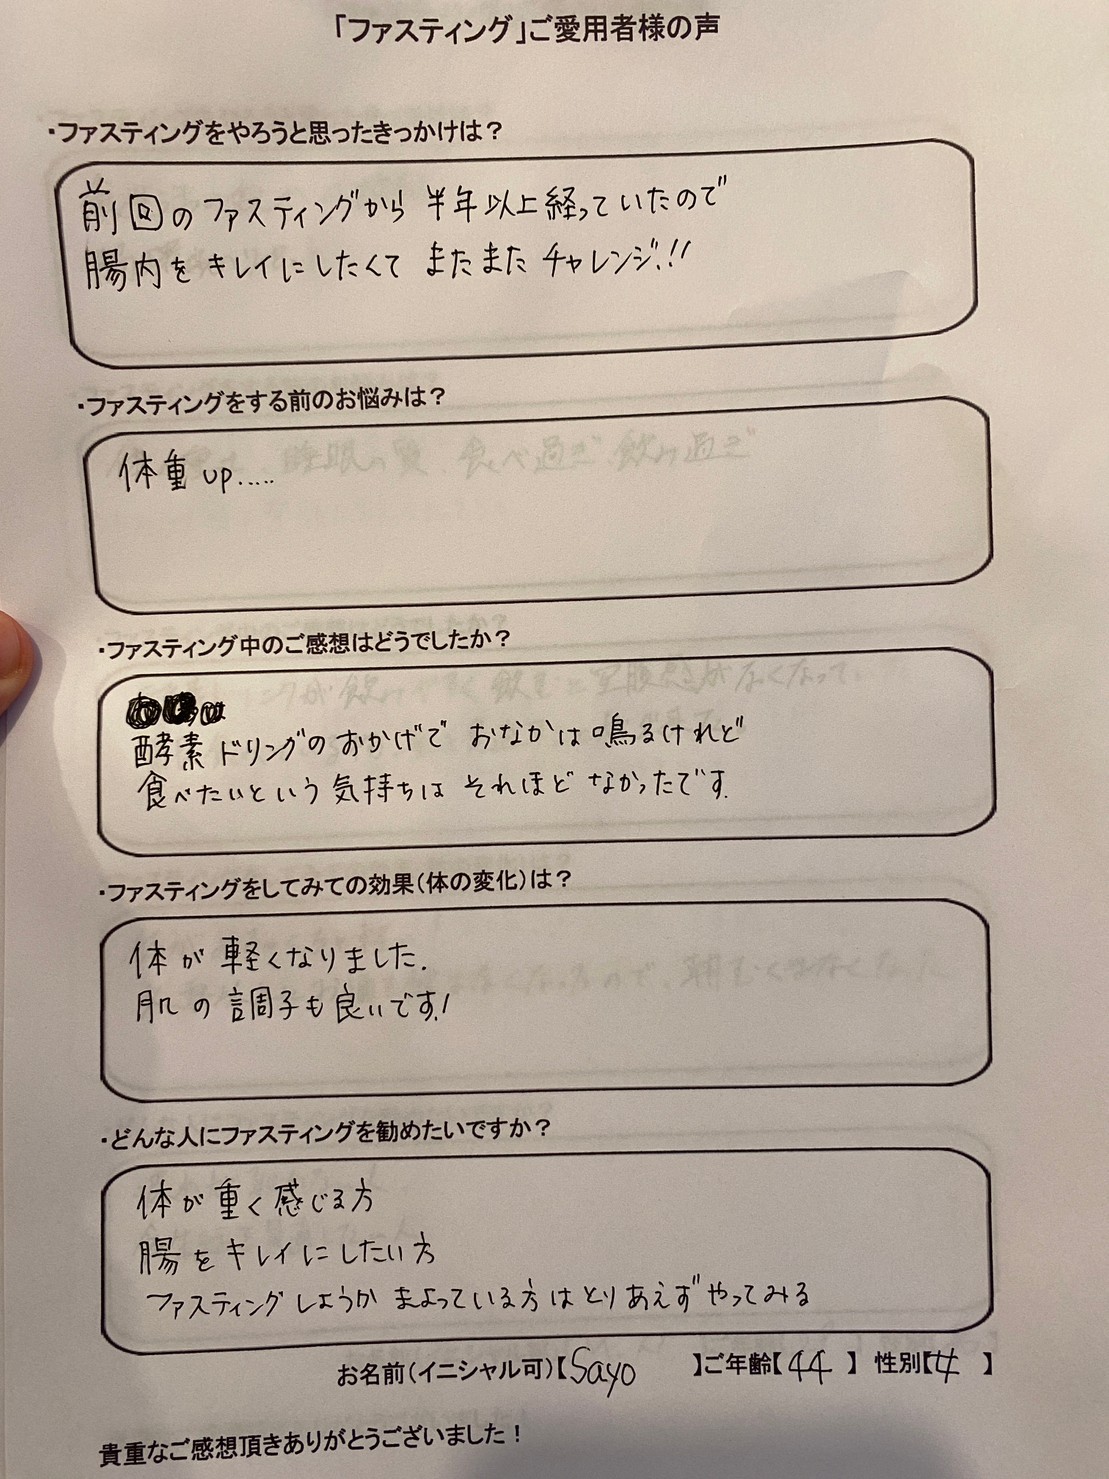 「ファスティング」ご愛用者様の声
・ファスティングをやろうと思ったきっかけは?
前回のファスティングから半年以上経っていたので
腸内をキレイにしたくて またまた チャレンジ!!
・ファスティングをする前のお悩みは?
体重up.....
・ファスティング中のご感想はどうでしたか?
酵素ドリングのおかげで おなかは鳴るけれど
食べたいという気持ちは それほど なかったです.
・ファスティングをしてみての効果(体の変化)は?
体が軽くなりました.
肌の調子も良いです!
・どんな人にファスティングを勧めたいですか?
体が重く感じる方
腸をキレイにしたい方
ファスティングしようか まよっている方はとりあえずやってみる
お名前(イニシャル可)【Sayo 】ご年齢【44 】 性別【女 】
貴重なご感想頂きありがとうございました!